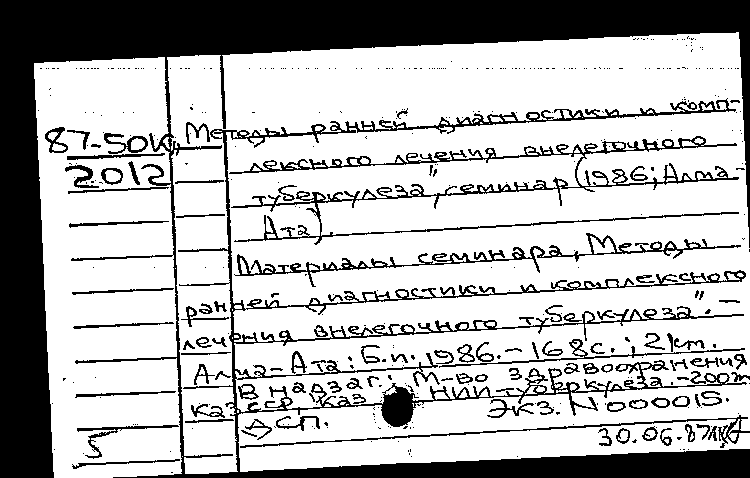 87-50K
2012
„Методы ранней диагностики и комп-
лексного лечения внелегочного
туберкулеза", семинар (1986; Алма-
Ата).
Материалы семинара „Методы
ранней диагностики и комплексного
лечения внелегочного туберкулеза". -
Алма-Ата: Б.и., 1986. - 168с.; 21см.
В надзаг.: М-во здравоохранения
КазССР, Каз. НИИ туберкулеза. - 200
ДСП. Экз. N 000015.
5
30.06.87